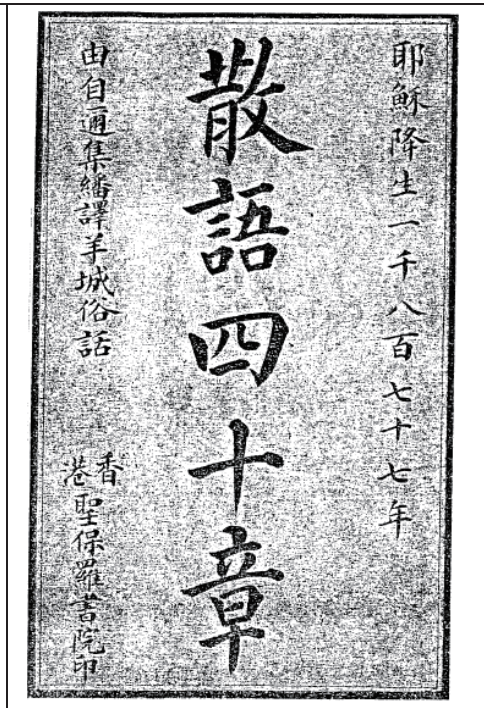 耶穌降生一千八百七十七年
散語四十章
由自邇集繙譯羊城俗話
香港聖保羅書院印